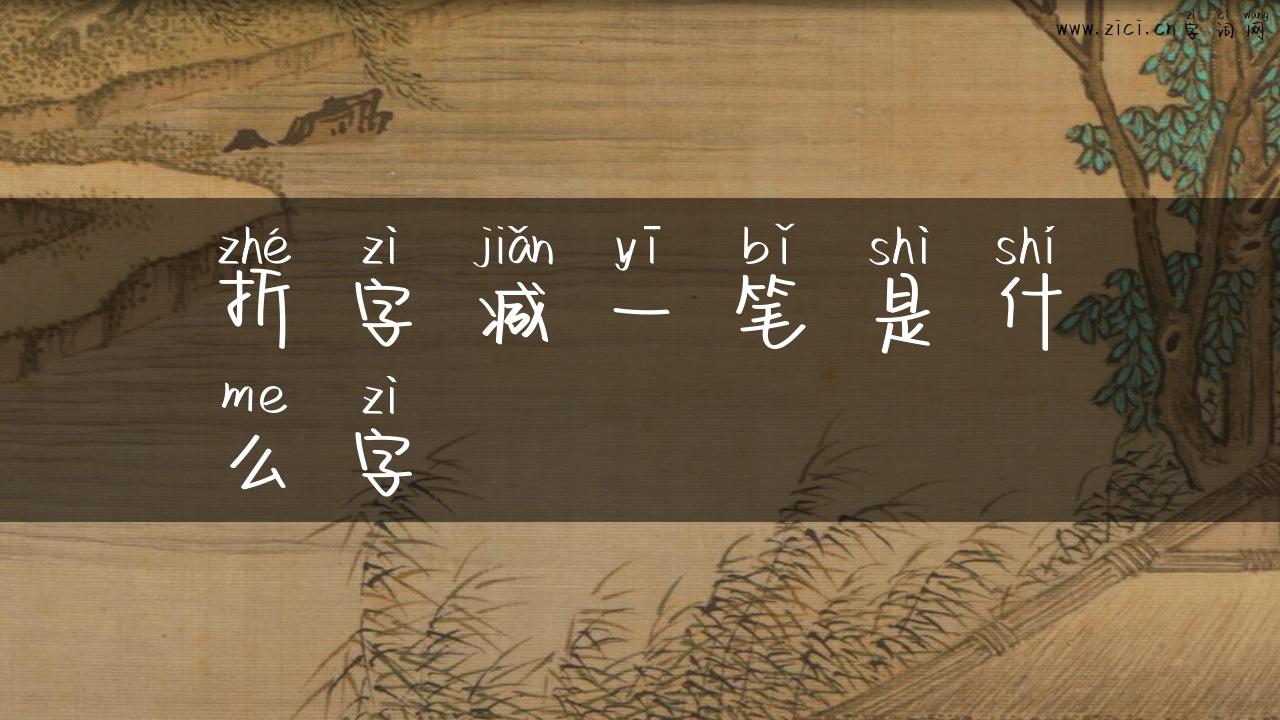 zì cí wǎng
www.zici.cn字词网
zhé zì jiǎn yī bǐ shì shí
折字减一笔是什
me zì
么字